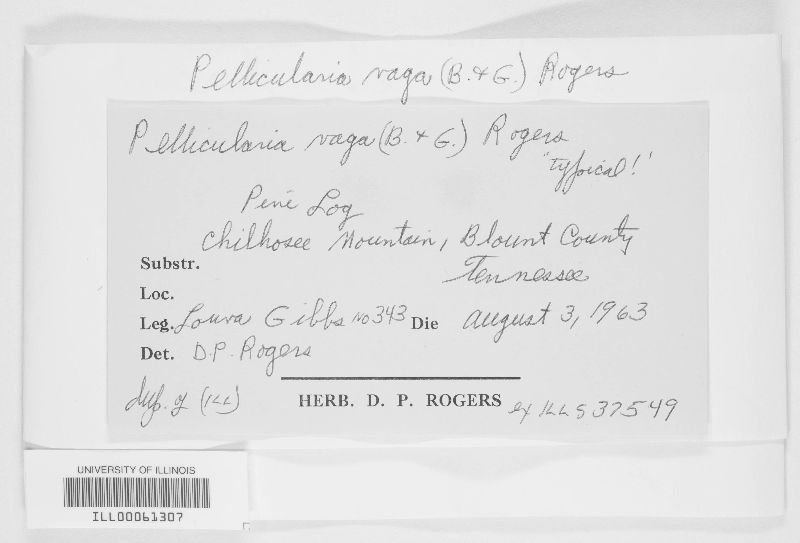 Pellicularia vaga (B. & G.) Rogers
Pellicularia vaga (B. & G.) Rogers
"typical!"
Pine Log
Chilhosee Mountain, Blount County
Substr. Tennessee
Loc.
Leg. Louva Gibbs No 343 Die August 3, 1963
Det. D.P. Rogers
dup. of (ILL) HERB. D. P. ROGERS ex ILLS 37549
UNIVERSITY OF ILLINOIS
ILL00061307